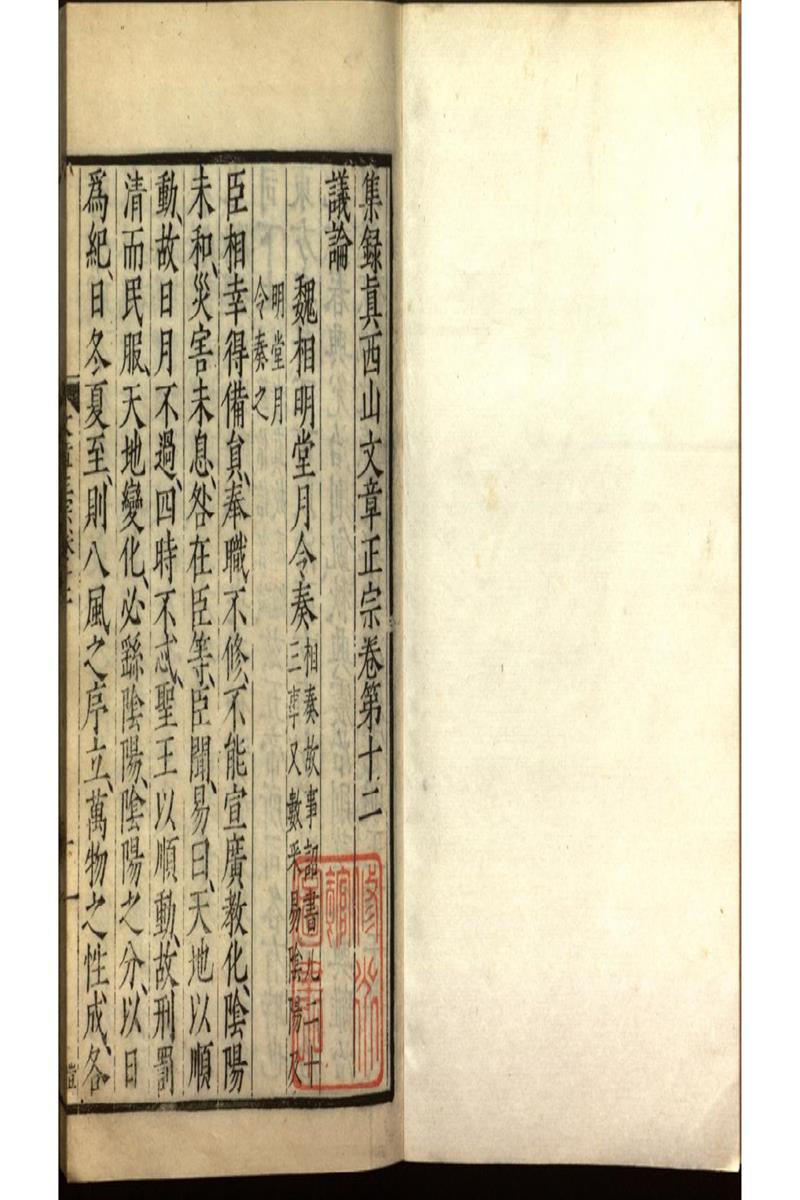 集録眞西山文章正宗卷第十二
議論
魏相明堂月令奏相奏故事詔書凡二十三事又數釆易隂陽及
明堂月令奏之
臣相幸得備貟、奉職不修、不能宣廣教化、隂陽
未和、災害未息、咎在臣等、臣聞、易曰、天地以順
動、故日月不過、四時不忒、聖王以順動、故刑罰
清而民服、天地變化、必繇隂陽、隂陽之分、以日
爲紀、日冬夏至、則八風之序立、萬物之性成、各